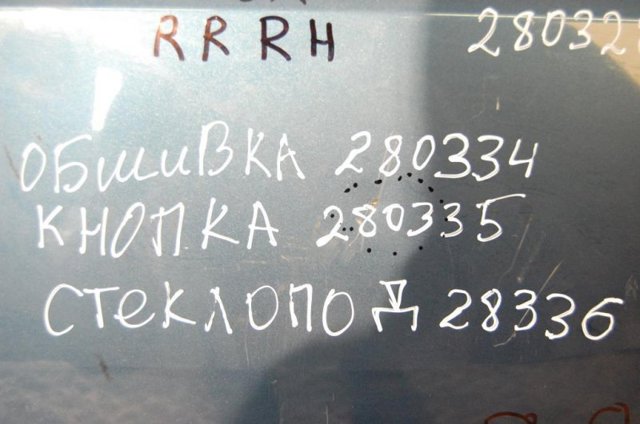 RRRH 28032
ОБШИВКА 280334
КНОПКА 280335
СТЕКЛОПОД 28336